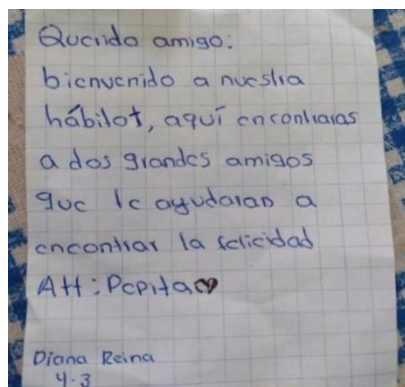 Querido amigo:
bienvenido a nuestra
hábitot, aquí encontraras
a dos grandes amigos
que le ayudaran a
encontrar la felicidad
Att: Pepita
Diana Reina
4-3